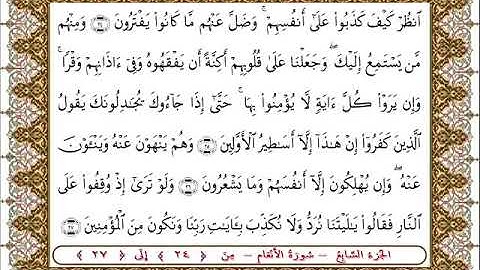 ٱنظُرۡ كَيۡفَ كَذَبُواْ عَلَىٰٓ أَنفُسِهِمۡۚ وَضَلَّ عَنۡهُم مَّا كَانُواْ يَفۡتَرُونَ ٢٤ وَمِنۡهُم
مَّن يَسۡتَمِعُ إِلَيۡكَۖ وَجَعَلۡنَا عَلَىٰ قُلُوبِهِمۡ أَكِنَّةً أَن يَفۡقَهُوهُ وَفِيٓ ءَاذَانِهِمۡ وَقۡرٗاۚ
وَإِن يَرَوۡاْ كُلَّ ءَايَةٖ لَّا يُؤۡمِنُواْ بِهَاۖ حَتَّىٰٓ إِذَا جَآءُوكَ يُجَٰدِلُونَكَ يَقُولُ
ٱلَّذِينَ كَفَرُوٓاْ إِنۡ هَٰذَآ إِلَّآ أَسَٰطِيرُ ٱلۡأَوَّلِينَ ٢٥ وَهُمۡ يَنۡهَوۡنَ عَنۡهُ وَيَنۡـَٔوۡنَ
عَنۡهُۖ وَإِن يُهۡلِكُونَ إِلَّآ أَنفُسَهُمۡ وَمَا يَشۡعُرُونَ ٢٦ وَلَوۡ تَرَىٰٓ إِذۡ وُقِفُواْ عَلَى
ٱلنَّارِ فَقَالُواْ يَٰلَيۡتَنَا نُرَدُّ وَلَا نُكَذِّبَ بِـَٔايَٰتِ رَبِّنَا وَنَكُونَ مِنَ ٱلۡمُؤۡمِنِينَ ٢٧
الجزء السابع - سورة الأنعام - مِن ﴿ ٢٤ ﴾ إلى ﴿ ٢٧ ﴾